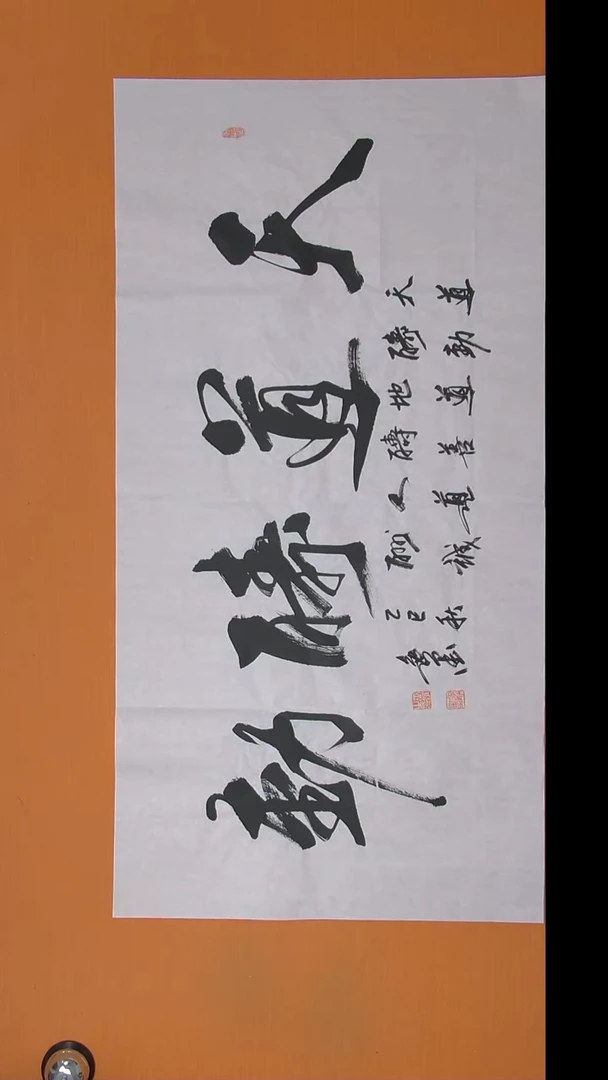 天道酬勤
天道
酬勤
地道
酬善
人道
酬诚
乙巳秋